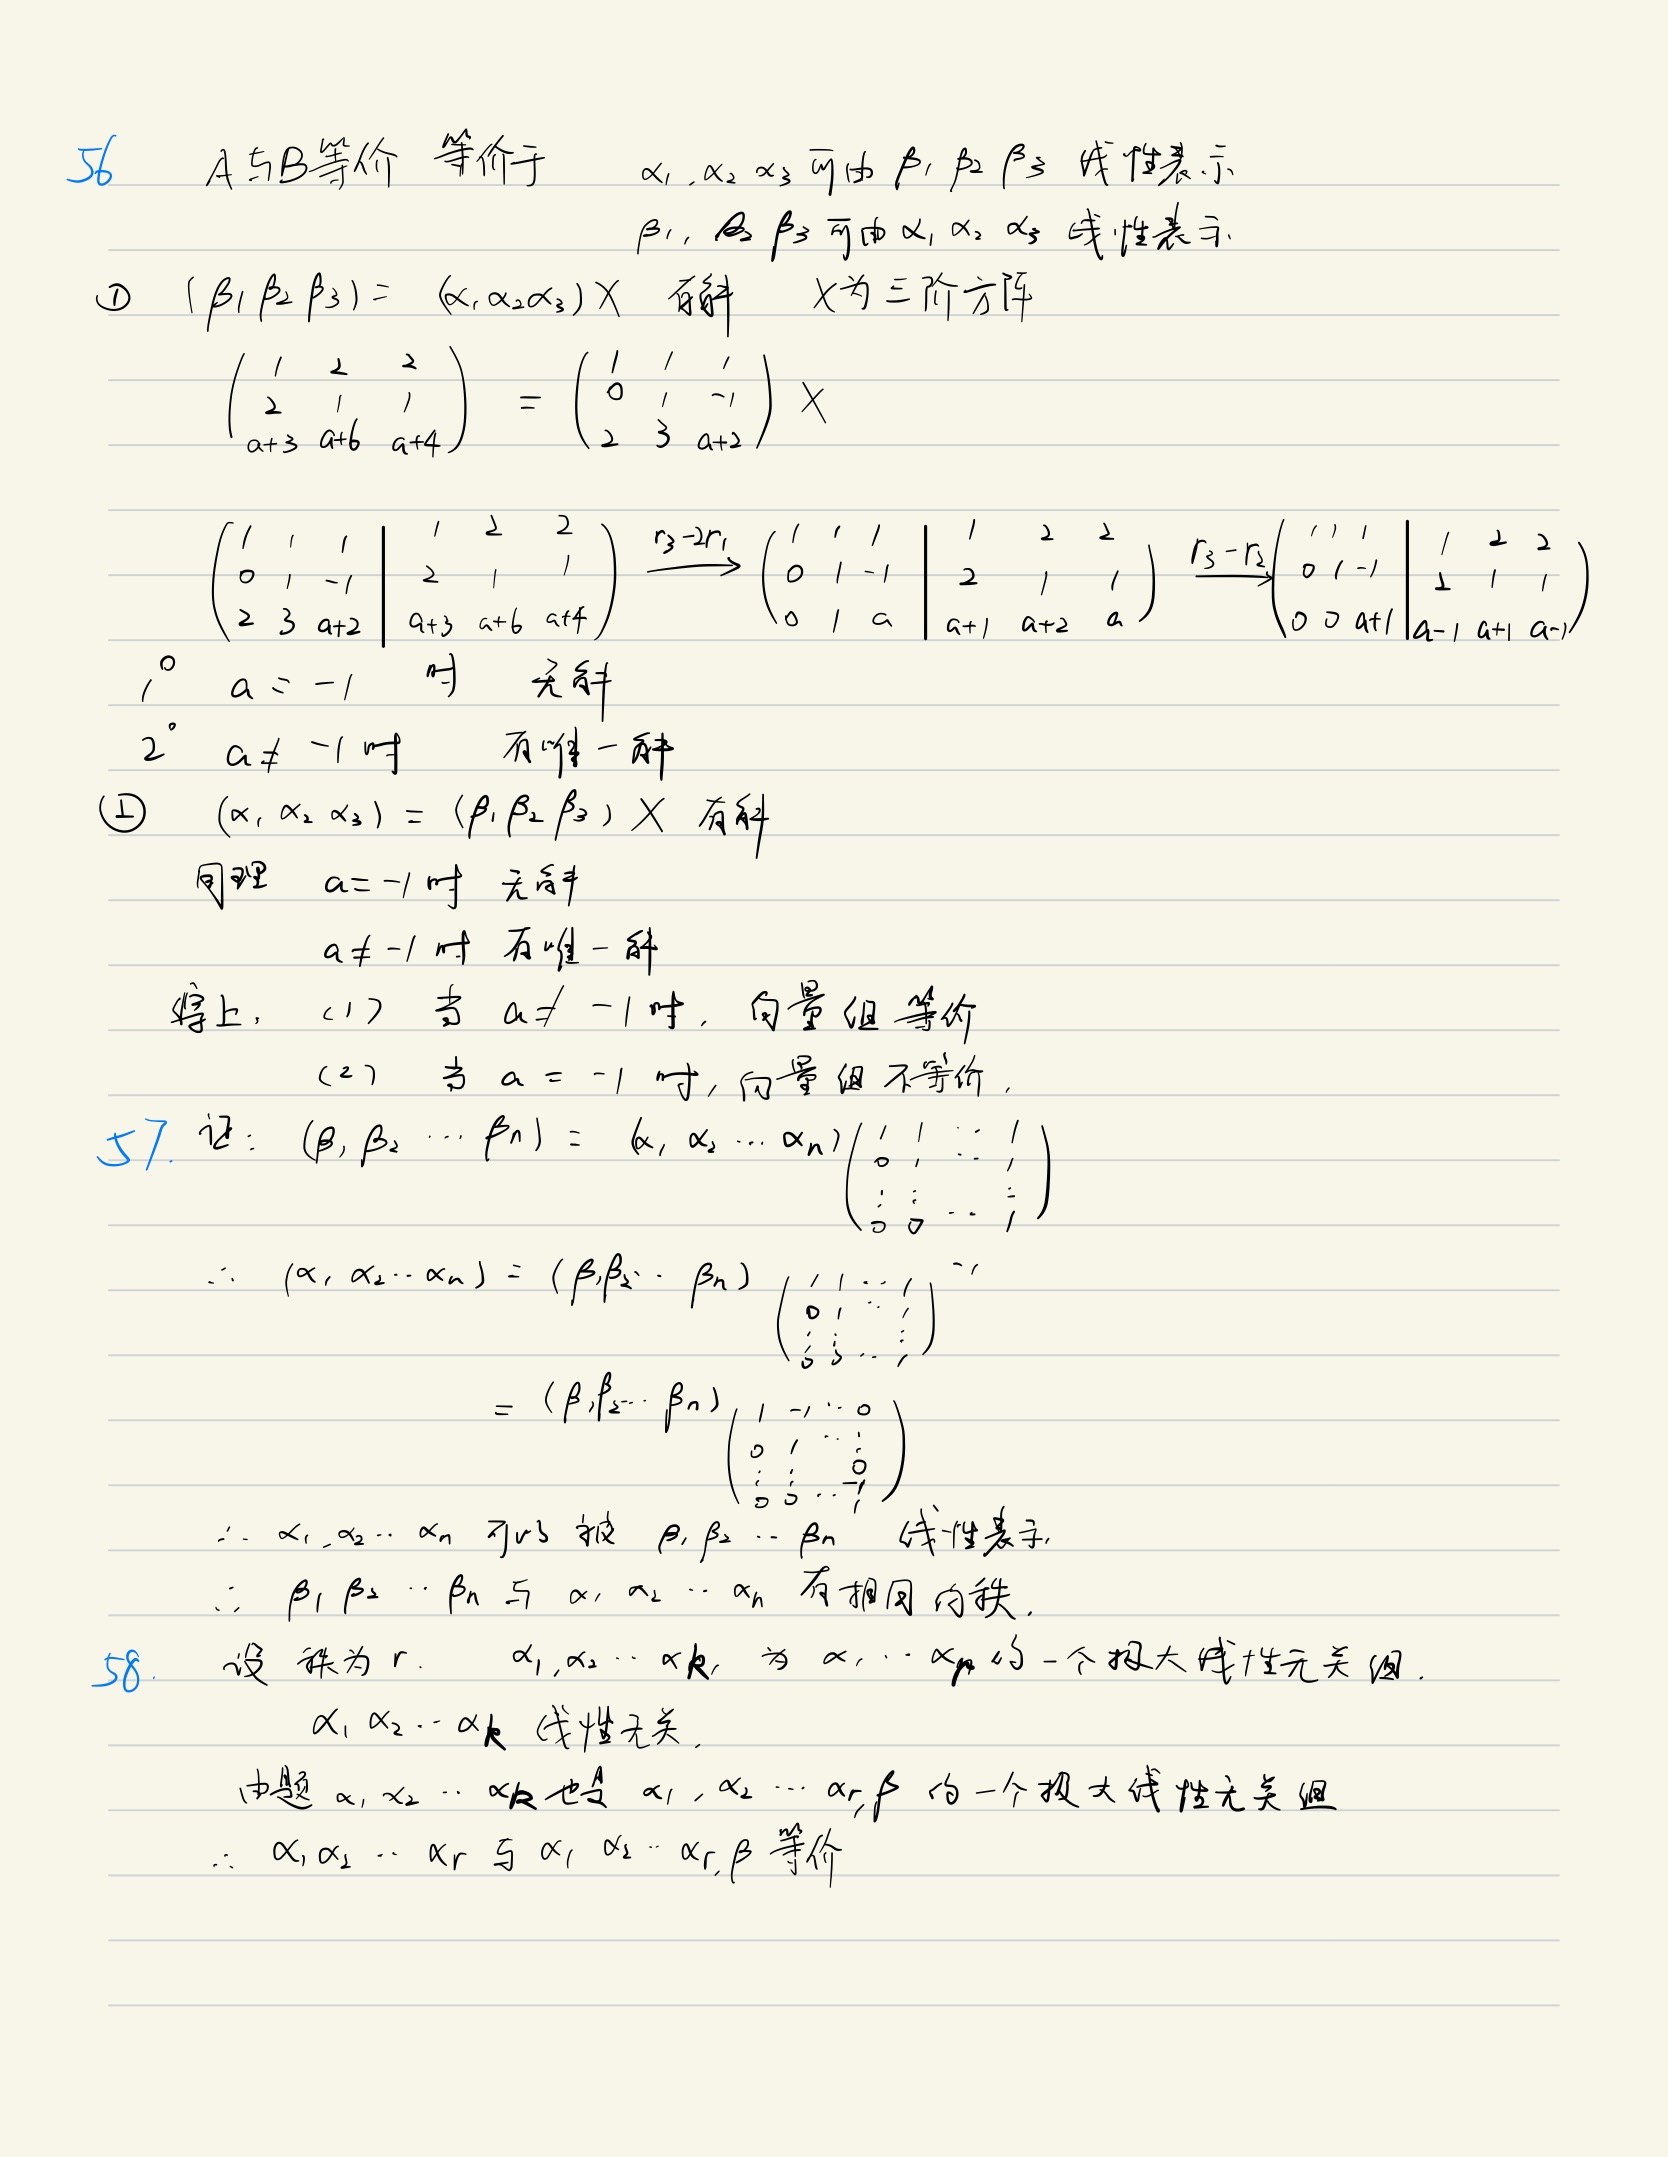 56 A与B等价 等价于 α₁,α₂ α₃ 可由 β₁ β₂ β₃ 线性表示
β₁, β₂ β₃ 可由 α₁ α₂ α₃ 线性表示.
① (β₁ β₂ β₃) = (α₁ α₂ α₃) X 有解 X为三阶方阵
( 1 2 2 ; 2 1 1 ; a+3 a+6 a+4 ) = ( 1 1 1 ; 0 1 -1 ; 2 3 a+2 ) X
( 1 1 1 | 1 2 2 ; 0 1 -1 | 2 1 1 ; 2 3 a+2 | a+3 a+6 a+4 ) r₃-2r₁ → ( 1 1 1 | 1 2 2 ; 0 1 -1 | 2 1 1 ; 0 1 a | a+1 a+2 a ) r₃-r₂ → ( 1 1 1 | 1 2 2 ; 0 1 -1 | 2 1 1 ; 0 0 a+1 | a-1 a+1 a-1 )
1° a = -1 时 无解
2° a ≠ -1 时 有唯一解
② (α₁ α₂ α₃) = (β₁ β₂ β₃) X 有解
同理 a = -1 时 无解
a ≠ -1 时 有唯一解
综上, (1) 当 a ≠ -1 时, 向量组等价
(2) 当 a = -1 时, 向量组不等价.
57. 证: (β₁ β₂ ⋯ βn) = (α₁ α₂ ⋯ αn) ( 1 1 ⋯ 1 ; 0 1 ⋯ 1 ; ⋮ ⋮ ⋮ ; 0 0 ⋯ 1 )
∴ (α₁ α₂ ⋯ αn) = (β₁ β₂ ⋯ βn) ( 1 1 ⋯ 1 ; 0 1 ⋯ 1 ; ⋮ ⋮ ⋮ ; 0 0 ⋯ 1 )⁻¹
= (β₁ β₂ ⋯ βn) ( 1 -1 ⋯ 0 ; 0 1 ⋯ ⋮ ; ⋮ ⋮ 0 -1 ; 0 0 ⋯ 1 )
∴ α₁,α₂ ⋯ αn 可以被 β₁ β₂ ⋯ βn 线性表示.
∴ β₁ β₂ ⋯ βn 与 α₁ α₂ ⋯ αn 有相同的秩.
58. 设 秩为 r. α₁,α₂ ⋯ αk, 为 α₁ ⋯ αr 的一个极大线性无关组.
α₁ α₂ ⋯ αk 线性无关.
由题 α₁ α₂ ⋯ αk 也是 α₁, α₂ ⋯ αr,β 的一个极大线性无关组
∴ α₁ α₂ ⋯ αr 与 α₁ α₂ ⋯ αr,β 等价